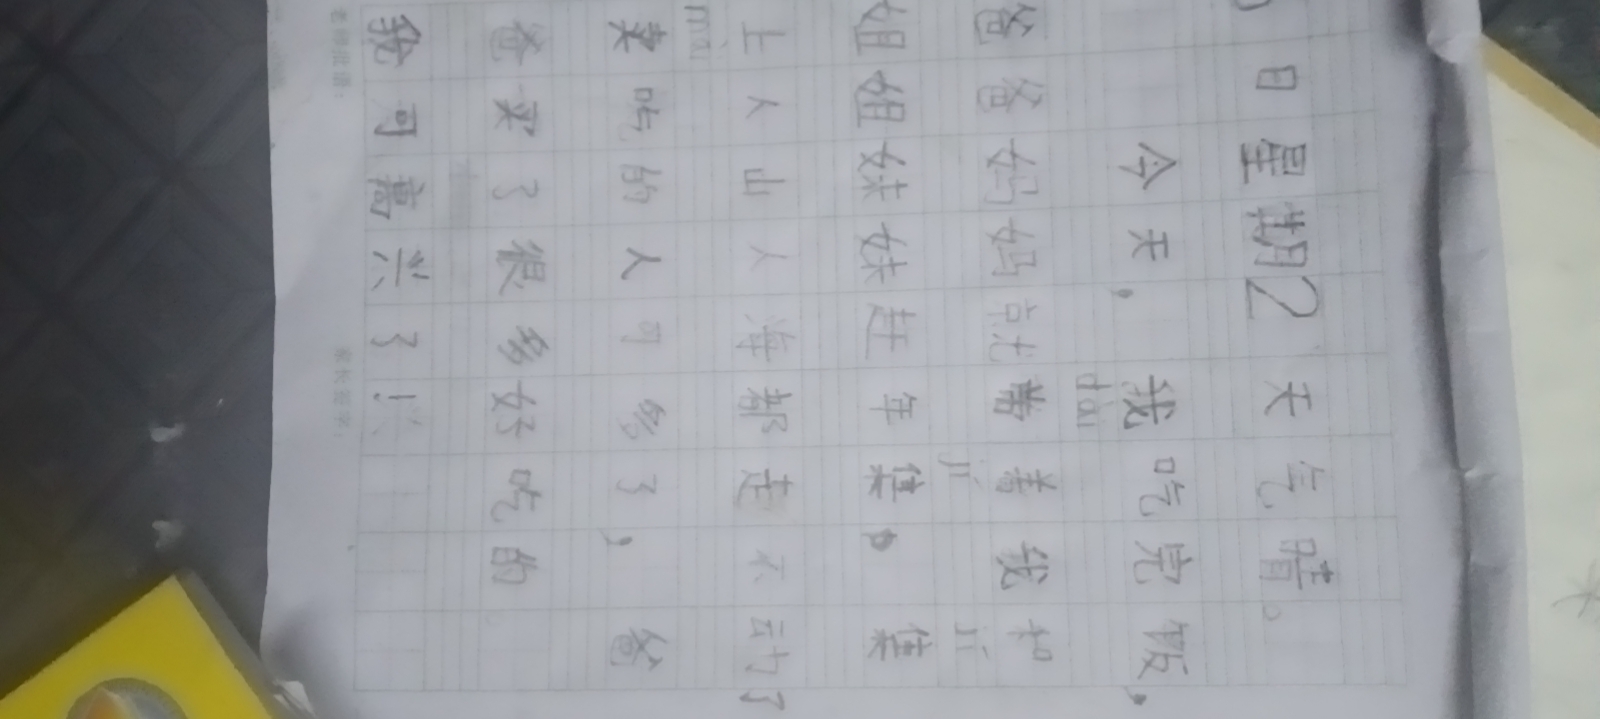 日星期2 天气晴。
今天，我吃完饭，
dài
爸爸妈妈就带着我和
jí jí
姐姐妹妹赶年集。集
上人山人海都走不动了
mài
卖吃的人可多了，爸
爸买了很多好吃的
我可高兴了！
老师批语： 家长签字：